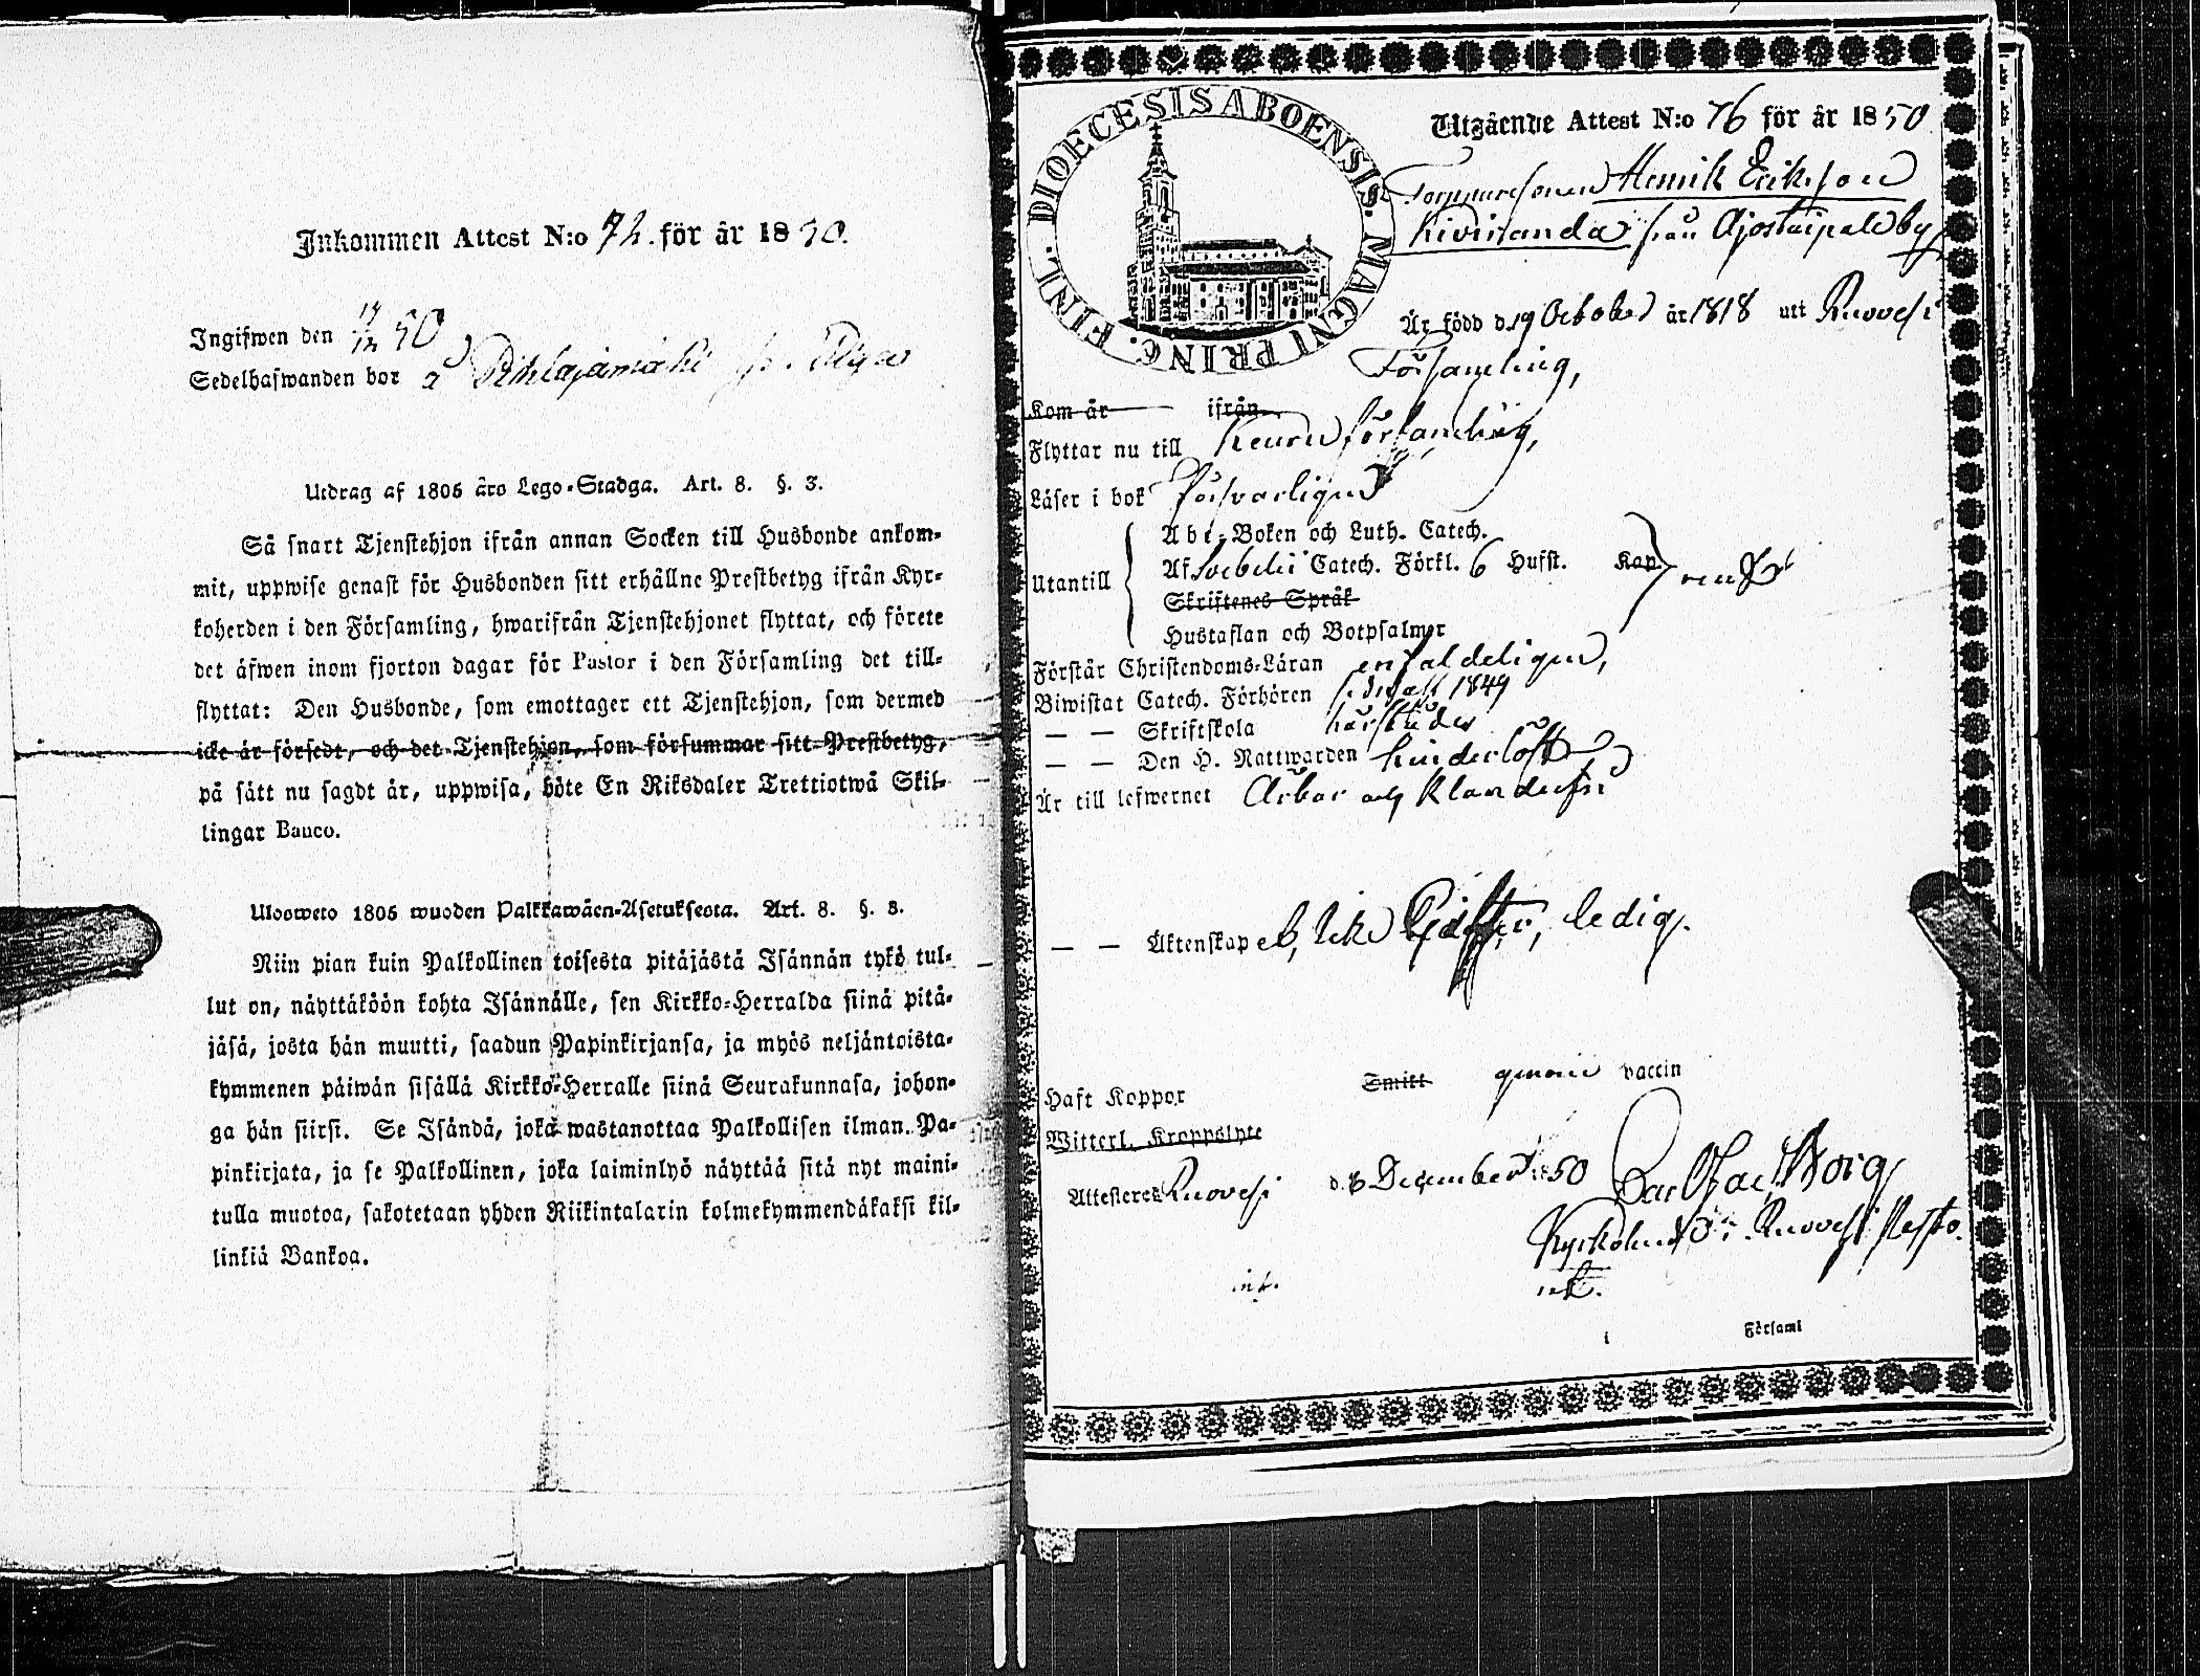 Inkommen Attest N:o 72. för år 1850.
Ingifwen den 17/12 50
Sedelhafwanden bor å Pihlajamäki
Utdrag af 1805 års Lego-Stadga. Art. 8. §. 3.
Så snart Tjenstehjon ifrån annan Socken till Husbonde ankom-
mit, uppwise genast för Husbonden sitt erhållne Prestbetyg ifrån Kyr-
koherden i den Församling, hwarifrån Tjenstehjonet flyttat, och förete
det äfwen inom fjorton dagar för Pastor i den Församling det till-
flyttat: Den Husbonde, som emottager ett Tjenstehjon, som dermed
icke är försedt, och det Tjenstehjon, som försummar sitt Prestbetyg,
på sätt nu sagdt är, uppwisa, böte En Riksdaler Trettiotwå Skil-
lingar Banco.
Ulosweto 1805 wuoden Palkkawäen-Asetuksesta. Art. 8. §. 3.
Niin pian kuin Palkollinen toisesta pitäjästä Isännän tykö tul-
lut on, näyttäköön kohta Isännälle, sen Kirkko-Herralda siinä pitä-
jäsä, josta hän muutti, saadun Papinkirjansa, ja myös neljäntoista-
kymmenen päiwän sisällä Kirkko-Herralle siinä Seurakunnasa, johon-
ga hän siirsi. Se Isändä, joka wastanottaa Palkollisen ilman Pa-
pinkirjata, ja se Palkollinen, joka laiminlyö näyttää sitä nyt maini-
tulla muotoa, sakotetaan yhden Riikintalarin kolmekymmendäkaksi kil-
linkiä Bankoa.
DIOECESIS ABOENSIS. MAGNI PRINC. FINL.
Utgående Attest N:o 76 för år 1850
Torpparesonen Henrik Erikson
Kiviranda från Ajostaipale by
Är född d. 19 October år 1818 uti Ruovesi
Församling,
Kom år ifrån
Flyttar nu till Keuru församling,
Läser i bok försvarligen
Utantill
Abc-Boken och Luth. Catech.
Af Svebelii Catech. Förkl. 6 Hufst. Kap.
Skriftenes Språk
Hustaflan och Botpsalmer
Förstår Christendoms-Läran enfaldeligen,
Biwistat Catech. Förhören 1849
— — Skriftskola härstädes
— — Den H. Nattwarden hinderlöst
Är till lefwernet Ärbar och Klanderfri
— — Äktenskap ledig.
Haft Koppor Smitt genom vaccin
Witterl. Kroppslyte
Attesteres Ruovesi d. 6 December 1850
Borg
Kyrkoherde i Ruovesi
Församl